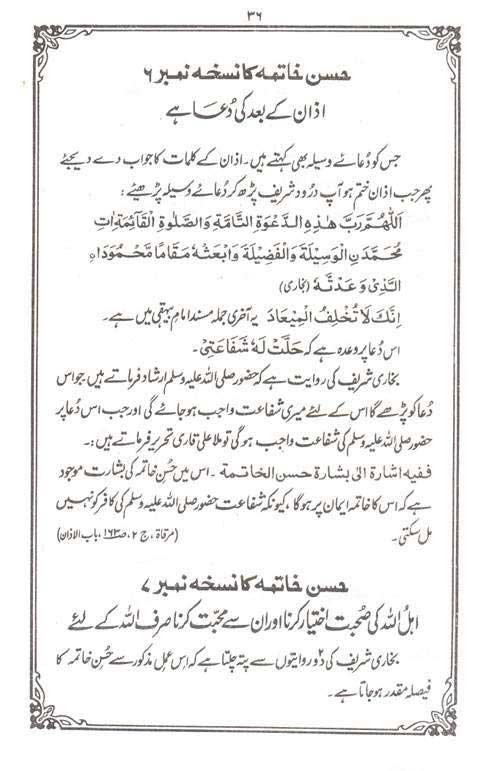 ۳۶
حسن خاتمہ کا نسخہ نمبر ۶
اذان کے بعد کی دُعا ہے
جس کو دُعائے وسیلہ بھی کہتے ہیں۔ اذان کے کلمات کا جواب دے دیجئے
پھر جب اذان ختم ہو آپ درود شریف پڑھ کر دُعائے وسیلہ پڑھیے:
اَللّٰهُمَّ رَبَّ هٰذِهِ الدَّعْوَةِ التَّامَّةِ وَالصَّلٰوةِ الْقَآئِمَةِ اٰتِ
مُحَمَّدَنِ الْوَسِيْلَةَ وَالْفَضِيْلَةَ وَابْعَثْهُ مَقَامًا مَّحْمُوْدَا۪
الَّذِيْ وَعَدْتَّهٗ (بخاری)
اِنَّكَ لَا تُخْلِفُ الْمِيْعَادَ یہ آخری جملہ مسند امام بیہقی میں ہے۔
اس دُعا پر وعدہ ہے کہ حَلَّتْ لَهٗ شَفَاعَتِيْ۔
بخاری شریف کی روایت ہے کہ حضور صلی اللہ علیہ وسلم ارشاد فرماتے ہیں: جو اس
دُعا کو پڑھے گا اس کے لئے میری شفاعت واجب ہو جائے گی اور جب اس دُعا پر
حضور صلی اللہ علیہ وسلم کی شفاعت واجب ہو گی تو ملا علی قاری تحریر فرماتے ہیں:۔
ففیہ اشارة الی بشارة حسن الخاتمة ۔ اس میں حُسن خاتمہ کی بشارت موجود
ہے کہ اس کا خاتمہ ایمان پر ہوگا، کیونکہ شفاعت حضور صلی اللہ علیہ وسلم کی کافر کو نہیں
مل سکتی۔ (مرقاة، ج ۲، صـ ۱۶۳، باب الاذان)
حسن خاتمہ کا نسخہ نمبر ۷
اہلُ اللہ کی صُحبت اختیار کرنا اور ان سے محبّت کرنا صرف اللہ کے لئے
بخاری شریف کی دو ۲ روایتوں سے پتہ چلتا ہے کہ اِس عمل مذکور سے حُسنِ خاتمہ کا
فیصلہ مقدر ہو جاتا ہے۔